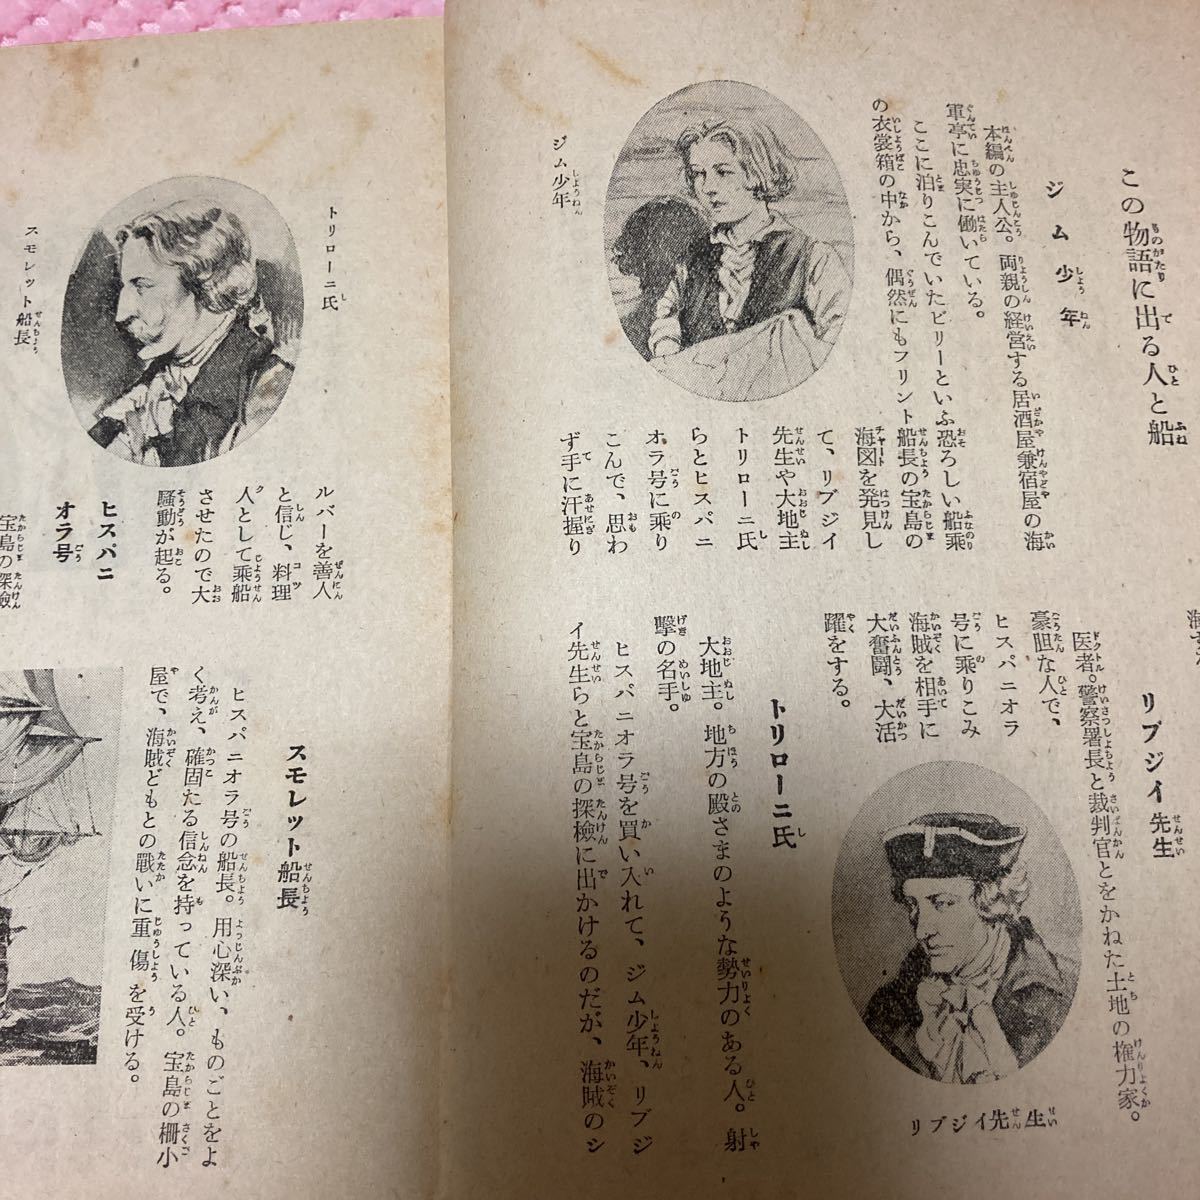 この物語に出る人と船
ジム少年
本編の主人公。両親の経営する居酒屋兼宿屋の海
軍亭に忠実に働いている。
ここに泊りこんでいたビリーといふ恐ろしい船乗
の衣裳箱の中から、偶然にもフリント
船長の宝島の
海図を発見し
て、リブジイ
先生や大地主
トリローニ氏
らとヒスパニ
オラ号に乗り
こんで、思わ
ず手に汗握り
ジム少年
リブジイ先生
医者。警察署長と裁判官とをかねた土地の権力家。
豪胆な人で、
ヒスパニオラ
号に乗りこみ
海賊を相手に
大奮闘、大活
躍をする。
リブジイ先生
トリローニ氏
大地主。地方の殿さまのような勢力のある人。射
擊の名手。
ヒスパニオラ号を買い入れて、ジム少年、リブジ
イ先生らと宝島の探検に出かけるのだが、海賊のシ
トリローニ氏
ルバーを善人
と信じ、料理
人として乗船
させたので大
騒動が起る。
スモレット船長
ヒスパニオラ号の船長。用心深い、ものごとをよ
く考え、確固たる信念を持っている人。宝島の柵小
屋で、海賊どもとの戰いに重傷を受ける。
スモレット船長
ヒスパニ
オラ号
宝島の探検